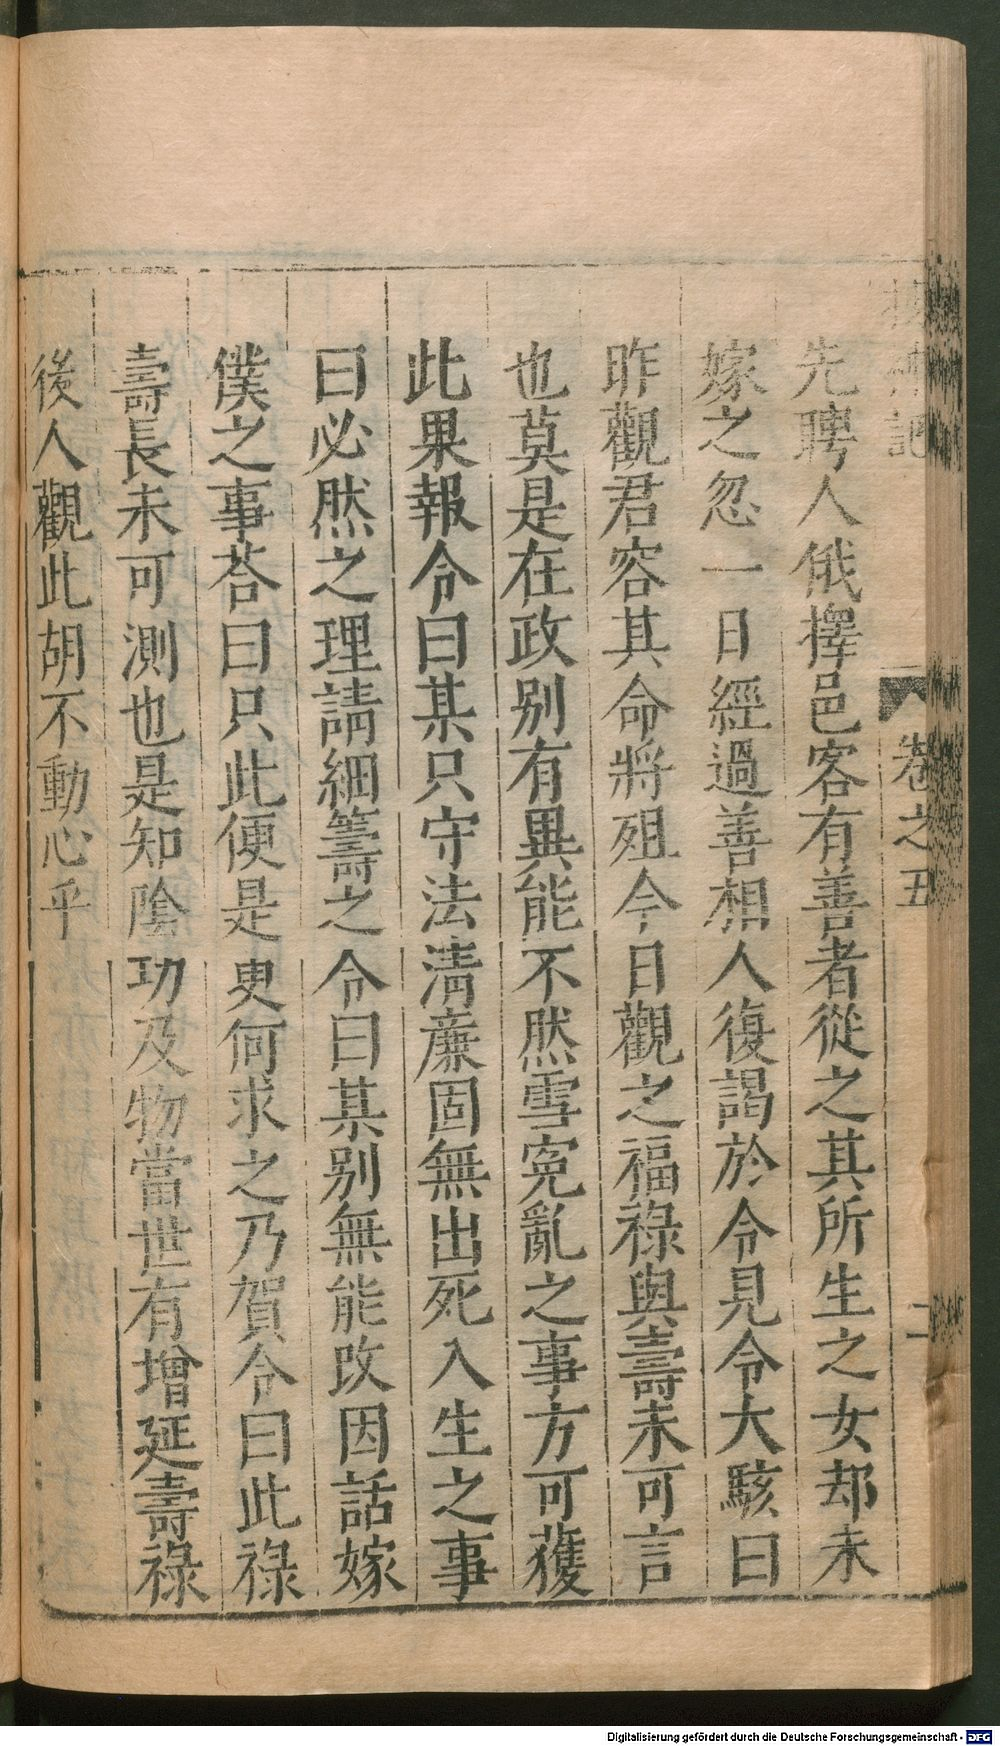 搜神記 卷之五 二
先聘人俄擇邑客有善者從之其所生之女却未
嫁之忽一日經過善相人復謁於令見令大駭曰
昨觀君容其命將殂今日觀之福祿與壽未可言
也莫是在政别有異能不然雪寃亂之事方可獲
此果報令曰某只守法清廉固無出死入生之事
曰必然之理請細籌之令曰某别無能改因話嫁
僕之事荅曰只此便是更何求之乃賀令曰此祿
壽長未可測也是知陰功及物當世有增延壽祿
後人觀此胡不動心乎
Digitalisierung gefördert durch die Deutsche Forschungsgemeinschaft - DFG